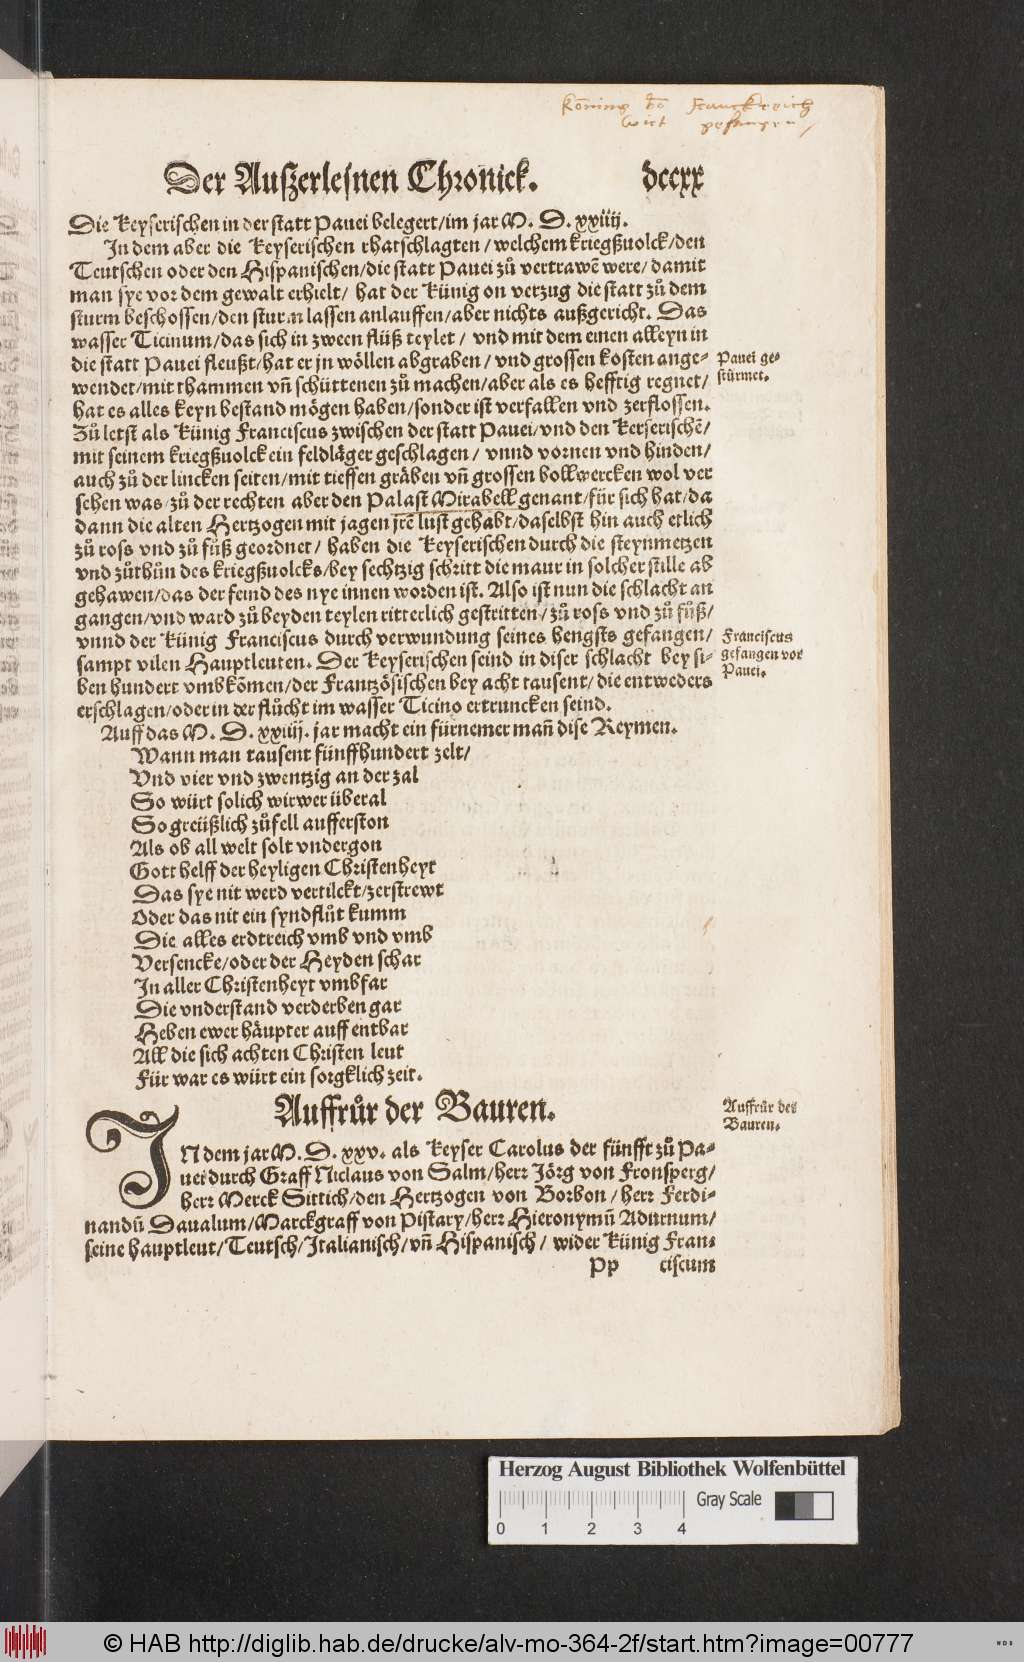 Köning vō Franckreich
wirt gefangen
Der Außerlesnen Chronick. dccxx
Die Keyserischen in der statt Pauei belegert/im jar M. D. xxiiij.
In dem aber die Keyserischen rhatschlagten/welchem kriegßuolck/den
Teutschen oder den Hispanischen/die statt Pauei zů vertrawē were/damit
man sye vor dem gewalt erhielt/ hat der Künig on verzug die statt zů dem
sturm beschossen/den sturm lassen anlauffen/aber nichts außgericht. Das
wasser Ticinum/das sich in zween flüß teylet / vnd mit dem einen alleyn in
die statt Pauei fleußt/hat er jn wöllen abgraben/ vnd grossen kosten ange-
wendet/mit thammen vñ schüttenen zů machen/aber als es hefftig regnet/
hat es alles keyn bestand mögen haben/sonder ist verfallen vnd zerflossen.
Zů letst als Künig Franciscus zwischen der statt Pauei/vnd den Kerserischē/
mit seinem kriegßuolck ein feldläger geschlagen / vnnd vornen vnd hinden/
auch zů der lincken seiten/mit tieffen gräben vñ grossen bollwercken wol ver
sehen was/zů der rechten aber den Palast Mirabell genant/für sich hat/da
dann die alten Hertzogen mit jagen jrē lust gehabt/daselbst hin auch etlich
zů ross vnd zů fůß geordnet/ haben die Keyserischen durch die steynmetzen
vnd zůthůn des kriegßuolcks/bey sechtzig schritt die maur in solcher stille ab
gehawen/das der feind des nye innen worden ist. Also ist nun die schlacht an
gangen/vnd ward zů beyden teylen ritterlich gestritten/zů ross vnd zů fůß/
vnnd der Künig Franciscus durch verwundung seines hengsts gefangen/
sampt vilen Hauptleuten. Der Keyserischen seind in diser schlacht bey si-
ben hundert vmbkōmen/der Frantzösischen bey acht tausent/die entweders
erschlagen/oder in der flůcht im wasser Ticino ertruncken seind.
Auff das M. D. xxiiij. jar macht ein fürnemer mañ dise Reymen.
Wann man tausent fünffhundert zelt/
Vnd vier vnd zwentzig an der zal
So würt solich wirwer überal
So greüßlich zůfell aufferston
Als ob all welt solt vndergon
Gott helff der heyligen Christenheyt
Das sye nit werd vertilckt/zerstrewt
Oder das nit ein syndflůt kumm
Die alles erdtreich vmb vnd vmb
Versencke/oder der Heyden schar
In aller Christenheyt vmbfar
Die vnderstand verderben gar
Heben ewer häupter auff entbar
All die sich achten Christen leut
Für war es würt ein sorgklich zeit.
Pauei ge-
stürmet.
Franciscus
gefangen vor
Pauei.
Auffrůr der Bauren.
Auffrůr der
Bauren.
IN dem jar M. D. xxv. als Keyser Carolus der fünfft zů Pa-
uei durch Graff Niclaus von Salm/herr Jörg von Fronsperg/
herr Merck Sittich/den Hertzogen von Borbon/herr Ferdi-
nandū Daualum/Marckgraff von Pistary/herr Hieronymū Adurnum/
seine hauptleut/Teutsch/Italianisch/vñ Hispanisch/ wider Künig Fran-
Pp ciscum
Herzog August Bibliothek Wolfenbüttel
Gray Scale
0 1 2 3 4
© HAB http://diglib.hab.de/drucke/alv-mo-364-2f/start.htm?image=00777